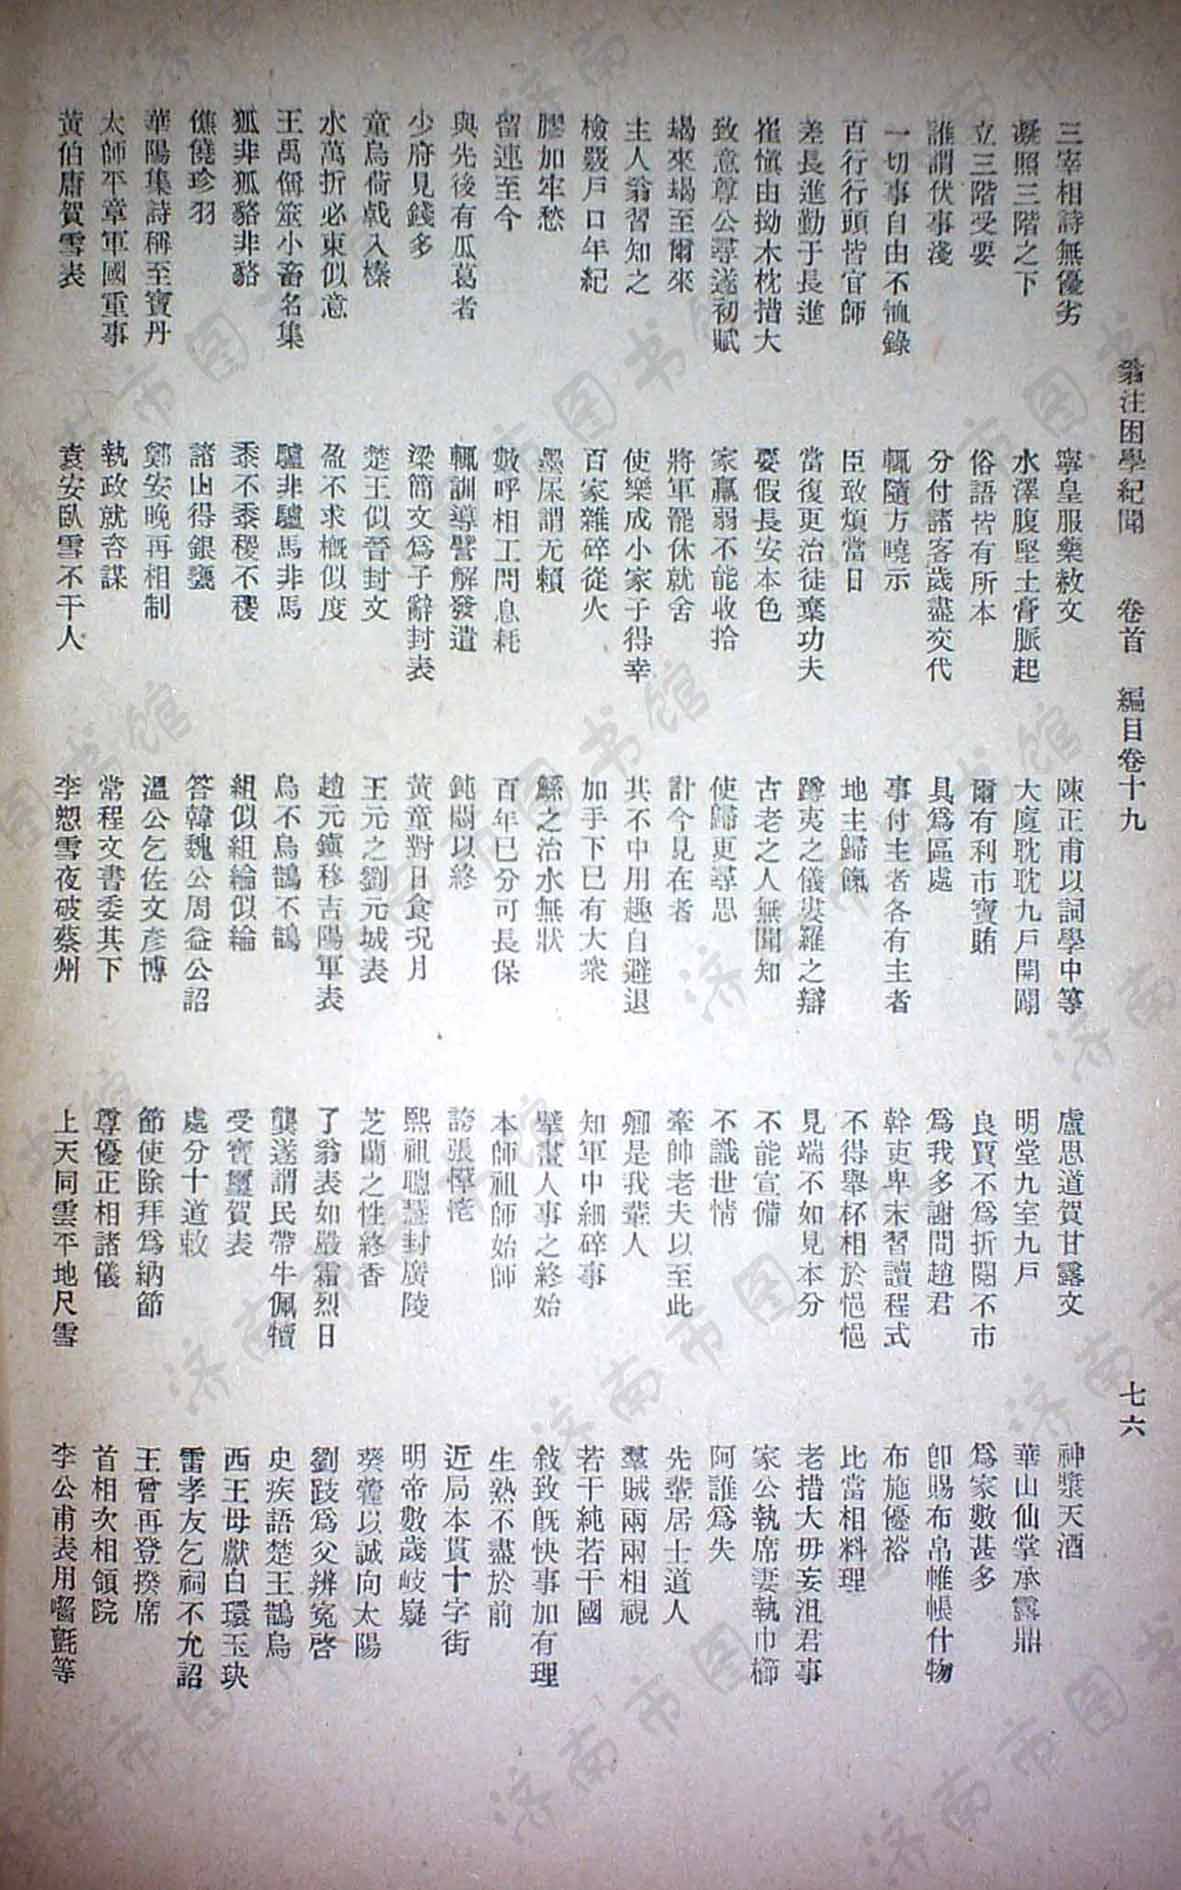 翁注困學紀聞 卷首 編目卷十九 七六
三宰相詩無優劣 寧皇服藥赦文 陳正甫以詞學中等 盧思道賀甘露文 神漿天酒
凝照三階之下 水澤腹堅土膏脈起 大廈耽耽九戶開闢 明堂九室九戶 華山仙掌承露鼎
立三階受要 俗語皆有所本 爾有利市寶賄 良賈不為折閱不市 為家數甚多
誰謂伏事淺 分付諸客歲盡交代 具為區處 為我多謝問趙君 卽賜布帛帷帳什物
一切事自由不恤錄 輒隨方曉示 事付主者各有主者 幹吏卑末習讀程式 布施優裕
百行行頭皆官師 臣敢煩當日 地主歸餼 不得舉杯相於悒悒 比當相料理
差長進勤于長進 當復更治徒棄功夫 蹲夷之儀婁羅之辯 見端不如見本分 老措大毋妄沮君事
崔愼由拗木枕措大 要假長安本色 古老之人無聞知 不能宣備 家公執席妻執巾櫛
致意尊公尋遂初賦 家羸弱不能收拾 使歸更尋思 不識世情 阿誰為失
朅來朅至爾來 將軍罷休就舍 計今見在者 牽帥老夫以至此 先輩居士道人
主人翁習知之 使樂成小家子得幸 共不中用趣自避退 卿是我輩人 羣賊兩兩相視
檢覈戶口年紀 百家雜碎從火 加手下已有大衆 知軍中細碎事 若干純若干國
膠加牢愁 墨杘謂无賴 鯀之治水無狀 擘畫人事之終始 敍致旣快事加有理
留連至今 數呼相工問息耗 百年已分可長保 本師祖師始師 生熟不盡於前
與先後有瓜葛者 輒訓導譬解發遣 鈍悶以終 誇張憚怹 近局本貫十字街
少府見錢多 梁簡文為子辭封表 黃童對日食況月 熙祖聰慧封廣陵 明帝數歲岐嶷
童烏荷戟入榛 楚王似晉封文 王元之劉元城表 芝蘭之性終香 葵藿以誠向太陽
水萬折必東似意 盈不求槪似度 趙元鎭移吉陽軍表 了翁表如嚴霜烈日 劉跂為父辨寃啓
王禹偁筮小畜名集 驢非驢馬非馬 烏不烏鵲不鵲 龔遂謂民帶牛佩犢 史疾語楚王鵲烏
狐非狐貉非貉 黍不黍稷不稷 組似組綸似綸 受寶璽賀表 西王母獻白環玉玦
僬僥珍羽 諸山得銀甕 答韓魏公周益公詔 處分十道敕 雷孝友乞祠不允詔
華陽集詩稱至寶丹 鄭安晚再相制 溫公乞佐文彥博 節使除拜為納節 王曾再登揆席
太師平章軍國重事 執政就咨謀 常程文書委其下 尊優正相諸儀 首相次相領院
黃伯庸賀雪表 袁安臥雪不干人 李愬雪夜破蔡州 上天同雲平地尺雪 李公甫表用囓氈等